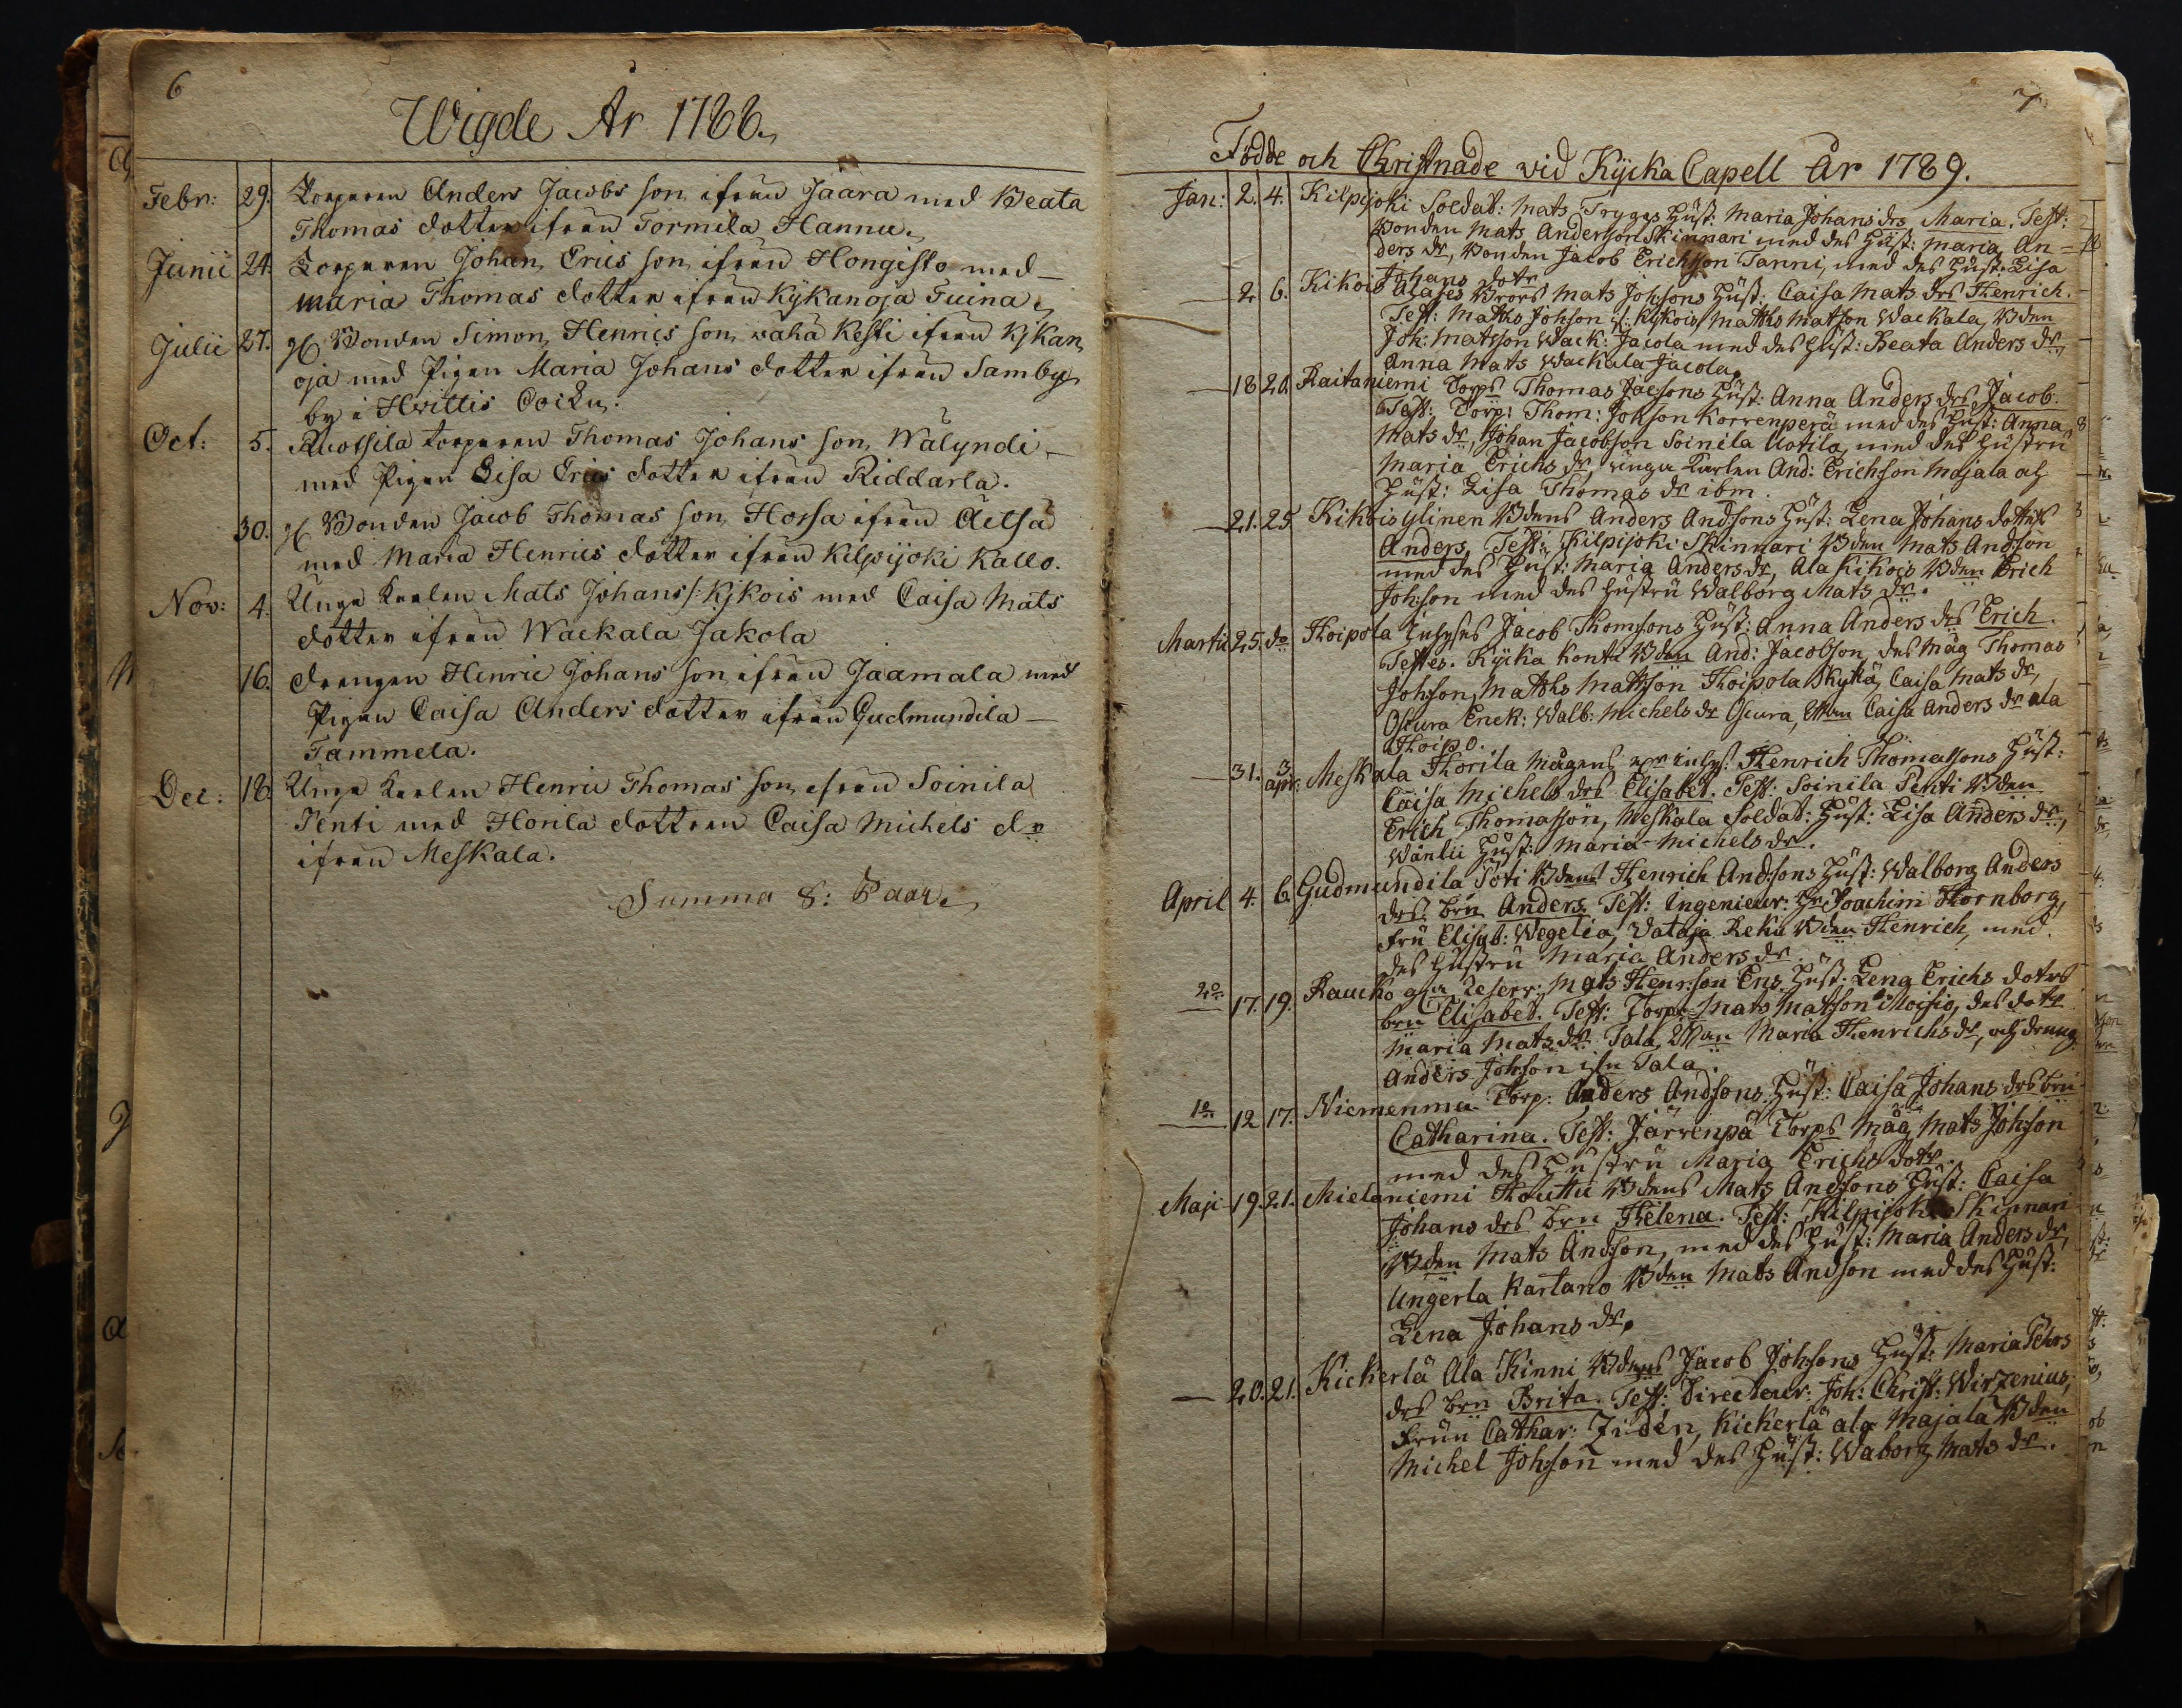 6
Wigde År 1788.
Febr: 29. Torparen Anders Jacobs son ifrån Jaara med Beata
Thomas dotter ifrån Tormila Hannu.
Junii 24. Torparen Johan Erics son ifrån Hongisto med
Maria Thomas dotter ifrån Kykänoja Tuina.
Julii 27. Bonden Simon Henrics son wähä Kesti ifrån Kjkän
oja med Pigan Maria Johans dotter ifrån Samby
by i Hvittis Sockn.
Oct: 5. Ruotsila torparen Thomas Johans son Wälyndi
med Pigan Lisa Erics dotter ifrån Riddarla.
30. Bonden Jacob Thomas son Hossa ifrån Äetsä
med Maria Henrics dotter ifrån Kilpijoki Kallo.
Nov: 4. Unga Karlen Mats Johans s: Kjkois med Caisa Mats
dotter ifrån Wackala Jakola
16. drengen Henric Johans son ifrån Jaamala med
Pigan Caisa Anders dotter ifrån Gudmundila
Tammela.
Dec: 18. Unga Karlen Henric Thomas son ifrån Soinila
Penti med Horila dottren Caisa Michels dr
ifrån Meskala.
Summa 8: Paar.
7
Födde och Christnade vid Kjicka Capell År 1789.
Jan: 2. 4. Kilpijoki Soldat: Mats Tryggs Hust: Maria Johans drs Maria. Test:
Bonden Mats Andersson Skinnari med des Hust: Maria An-
ders dr, Bonden Jacob Erichsson Tanni, med des Hust: Lisa
Johans dotr
— 2. 6. Kikois Alases Brors Mats Johsons Hust: Caisa Mats drs Henrich.
Test: Matths Johson if: Kykois, Matths Matson Wackala, Bden
Joh: Matsson Wack: Jacola med des Hust: Beata Anders dr,
Anna Mats Wackala Jacola.
— 18 20. Raitaniemi Torps Thomas Jacsons Hust: Anna Anders drs Jacob.
Test: Torp: Thom: Johson Korrenperä med des Hust: Anna
Mats dr, Johan Jacobson Soinila Uotila, med des Hustru
Maria Erichs dr, unga Karlen And: Erichson Majala och
Hust: Lisa Thomas dr ibm.
— 21. 25. Kikois Ylinen Bdens Anders Andsons Hust: Lena Johans dotters
Anders. Test: Kilpijoki Skinnari Bden Mats Andson
med des Hust: Maria Anders dr, Ala Kikois Bden Erich
Johson med des Hustru Walborg Mats dr.
Martii 25. do Hoipola Inhyses Jacob Thomsons Hust: Anna Anders drs Erich.
Testes. Kjicka Konti Bden And: Jacobson, des Måg Thomas
Johson, Matths Mattson Hoipola Kylä, Caisa Mats dr,
Oscura Enck: Walb: Michels dr Oscura, Caisa Anders dr ala
Hoipo.
— 31. 3. apr: Meskala Horila Mågens inhys: Henrich Thomassons Hust:
Caisa Michels drs Elisabet. Test: Soinila Penti Bden
Erich Thomasson, Meskala Soldat: Hust: Lisa Anders dr,
Wänlii Hust: Maria Michels dr.
April 4. 6. Gudmundila Sori Bdens Henrich Andsons Hust: Walborg Anders
drs brn Anders. Test: Ingenieur: Hr Joachim Hornborg,
Fru Elisab: Wegelia, Vataja Reku Bden Henrich, med
des Hustru Maria Anders dr.
2o 17. 19. Raucko Reserv: Mats Henrson Ens Hust: Lena Erichs dotrs
brn Elisabet. Test: Torp: Mats Matson Moisio, des dotr
Maria Mats dr Tala, Maria Henrichs dr, och dreng
Anders Johson ifn Tala.
1o 12 17. Niemenmaa Torp: Anders Andsons Hust: Caisa Johans drs brn
Catharina. Test: Järvenpä Torps Måg Mats Johson
med des Hustru Maria Erichs dotr.
Maji 19. 21. Mielaniemi Houttu Bdens Mats Andsons Hust: Caisa
Johans drs brn Helena. Test: Kilpijoki Skinnari
Bden Mats Andson, med des Hust: Maria Anders dr,
Ungerla Kartano Bden Mats Andson med des Hust:
Lena Johans dr.
— 20. 21. Kickerlä Ala Kinni Bdens Jacob Johsons Hust: Maria Pehrs
drs brn Brita. Test: Directeur: Joh: Christ: Wirzenius,
Frun Cathar: Zidén, Kickerlä ala Majala Bden
Michel Johson med des Hust: Waborg Mats dr.